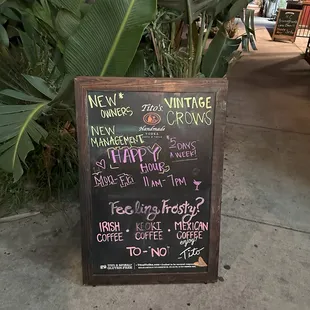 NEW*
OWNERS
NEW
MANAGEMENT
Tito's
Handmade
VODKA
VINTAGE
CROWS
HAPPY
HOUR
5
DAYS
A WEEK!
MON-FRI
11AM-7PM
Feeling Frosty?
IRISH
COFFEE
KEOKI
COFFEE
MEXICAN
COFFEE
enjoy
TO-"NO"
Tito